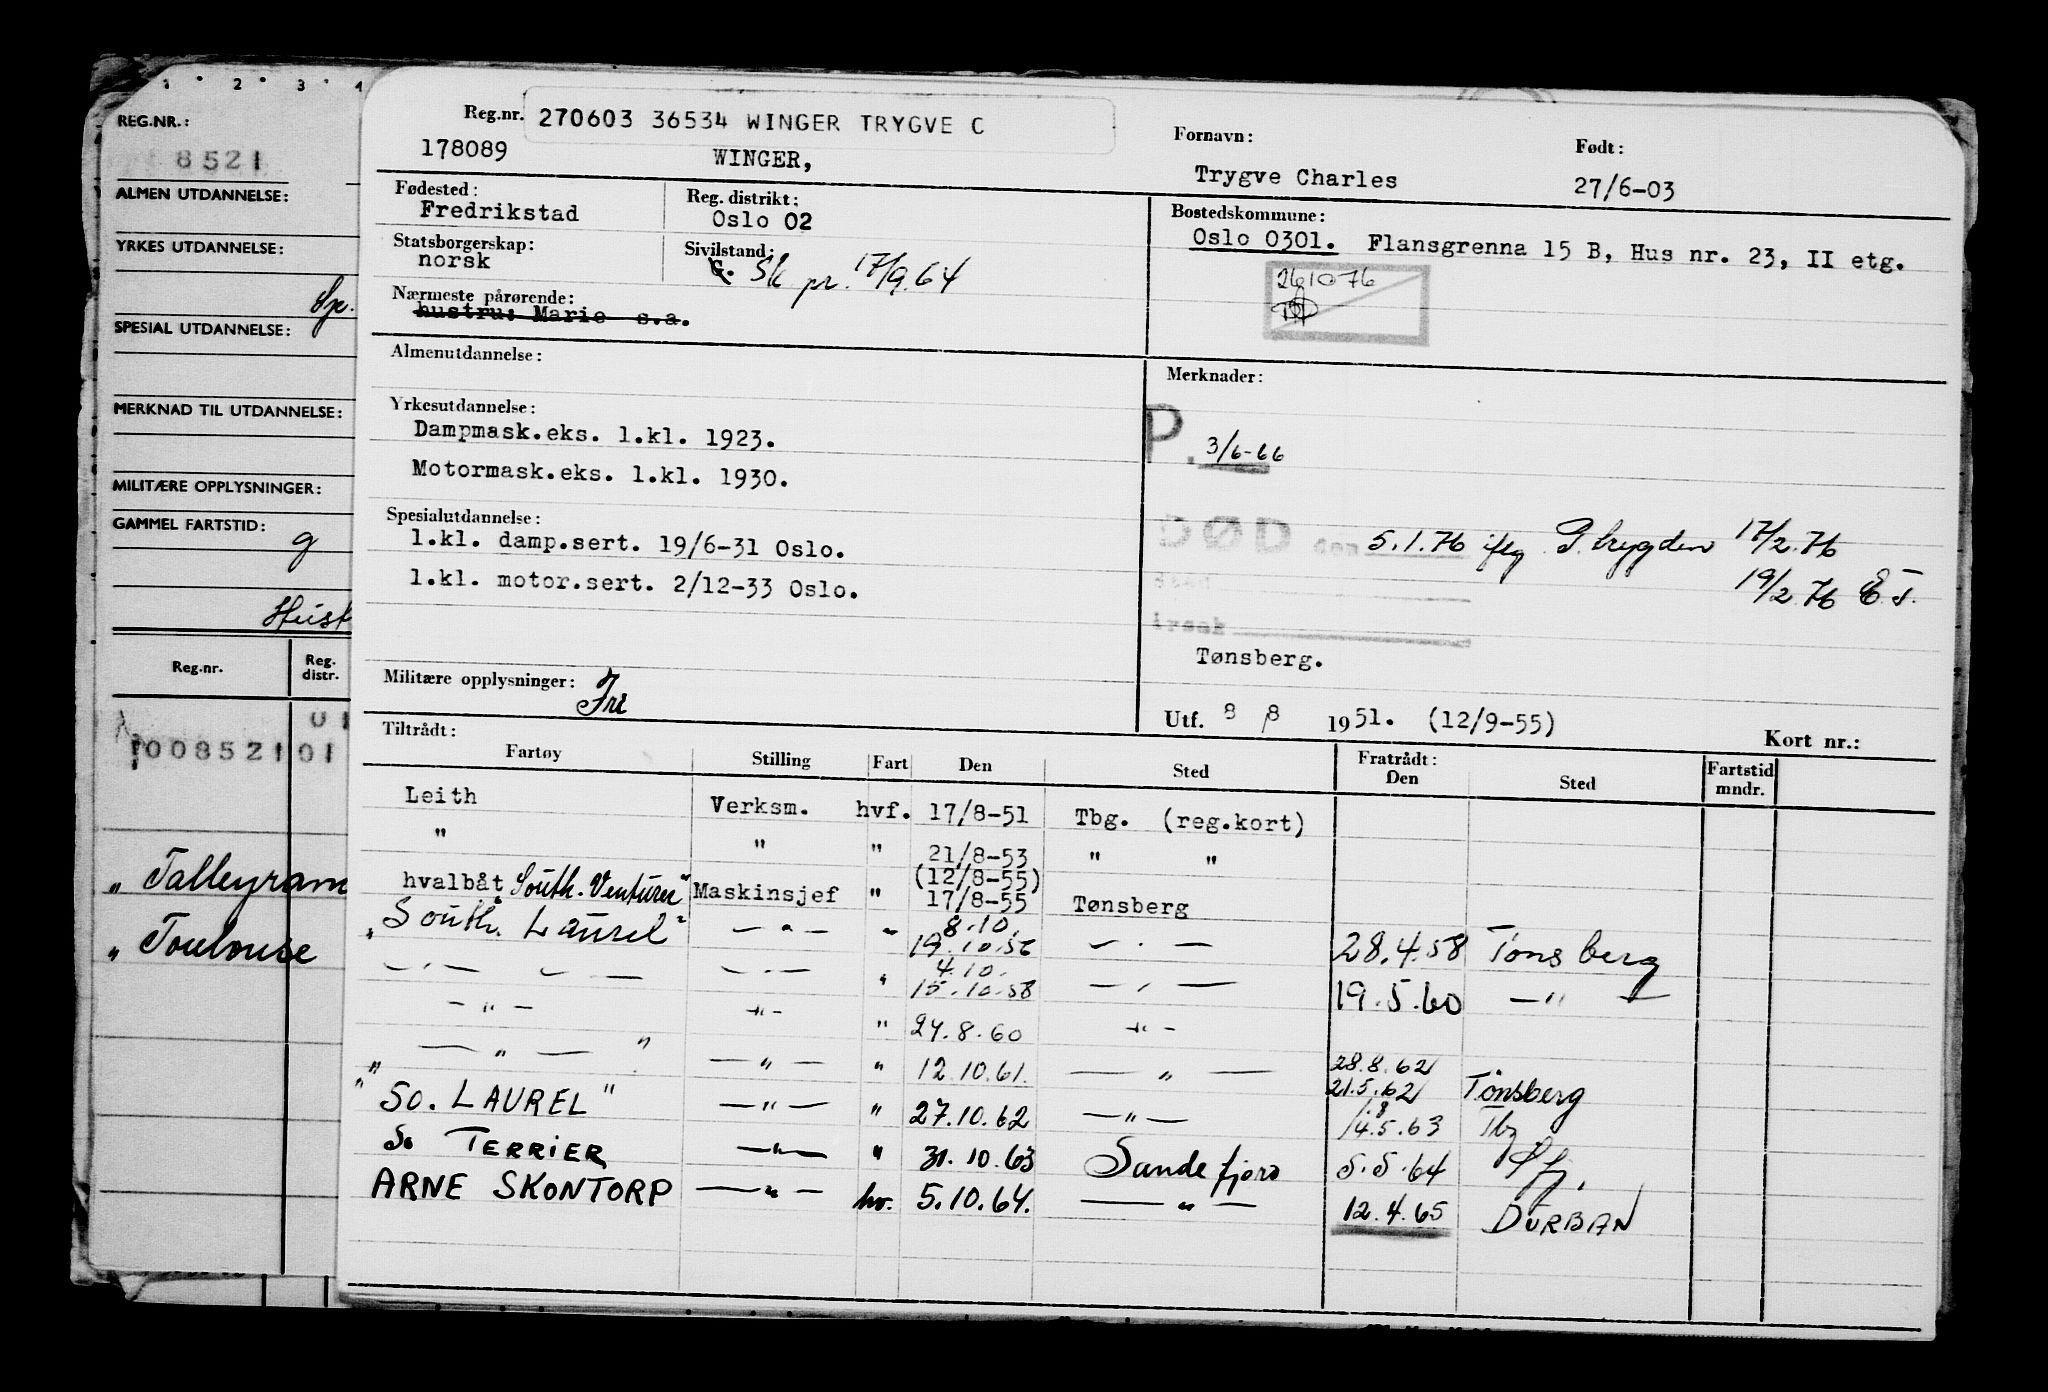 1 2 3 4
REG.NR.:
8521
ALMEN UTDANNELSE:
YRKES UTDANNELSE:
SPESIAL UTDANNELSE:
MERKNAD TIL UTDANNELSE:
MILITÆRE OPPLYSNINGER:
GAMMEL FARTSTID:
g
Hust
Reg.nr. Reg. distr.
01
0085210 01
" Talleyran
" Toulouse
Reg.nr. 270603 36534 WINGER TRYGVE C
178089 WINGER,
Fornavn: Født:
Trygve Charles 27/6-03
Fødested: Reg. distrikt: Bostedskommune:
Fredrikstad Oslo 02 Oslo 0301. Flansgrenna 15 B, Hus nr. 23, II etg.
Statsborgerskap: Sivilstand:
norsk G. Sk pr. 17/9.64
261076
Nærmeste pårørende:
hustru: Marie s.a.
Almenutdannelse: Merknader:
Yrkesutdannelse:
Dampmask.eks. 1.kl. 1923. P. 3/6-66
Motormask.eks. 1.kl. 1930.
Spesialutdannelse:
DØD den 5.1.76 iflg P.trygden 17/2.76
1.kl. damp.sert. 19/6-31 Oslo.
19/2.76 E.T.
1.kl. motor.sert. 2/12-33 Oslo.
Sted
årsak
Tønsberg.
Militære opplysninger: Fri
Utf. 8 8 1951. (12/9-55) Kort nr.:
Tiltrådt: Fratrådt:
Fartøy Stilling Fart Den Sted Den Sted Fartstid mndr.
Leith Verksm. hvf. 17/8-51 Tbg. (reg.kort)
" " " 21/8-53 " "
(12/8-55)
hvalbåt "South. Venturer" Maskinsjef " 17/8-55 Tønsberg
8.10.
" South. Laurel" — " — " 19.10.56 — " — 28.4.58 Tønsberg
4.10.
— " — — " — — " — " 15.10.58 — " — 19.5.60 — " —
— " — — " — " 24.8.60 — " —
28.8.62
" — " — " — " — " 12.10.61. — " — 21.5.62 Tønsberg
" SO. LAUREL" — " — " 27.10.62 — " — 14.5.63 Tbg
So TERRIER — " — " 31.10.63 Sandefjord 5.5.64 Sfj.
ARNE SKONTORP — " — hv. 5.10.64. — " — 12.4.65 DURBAN